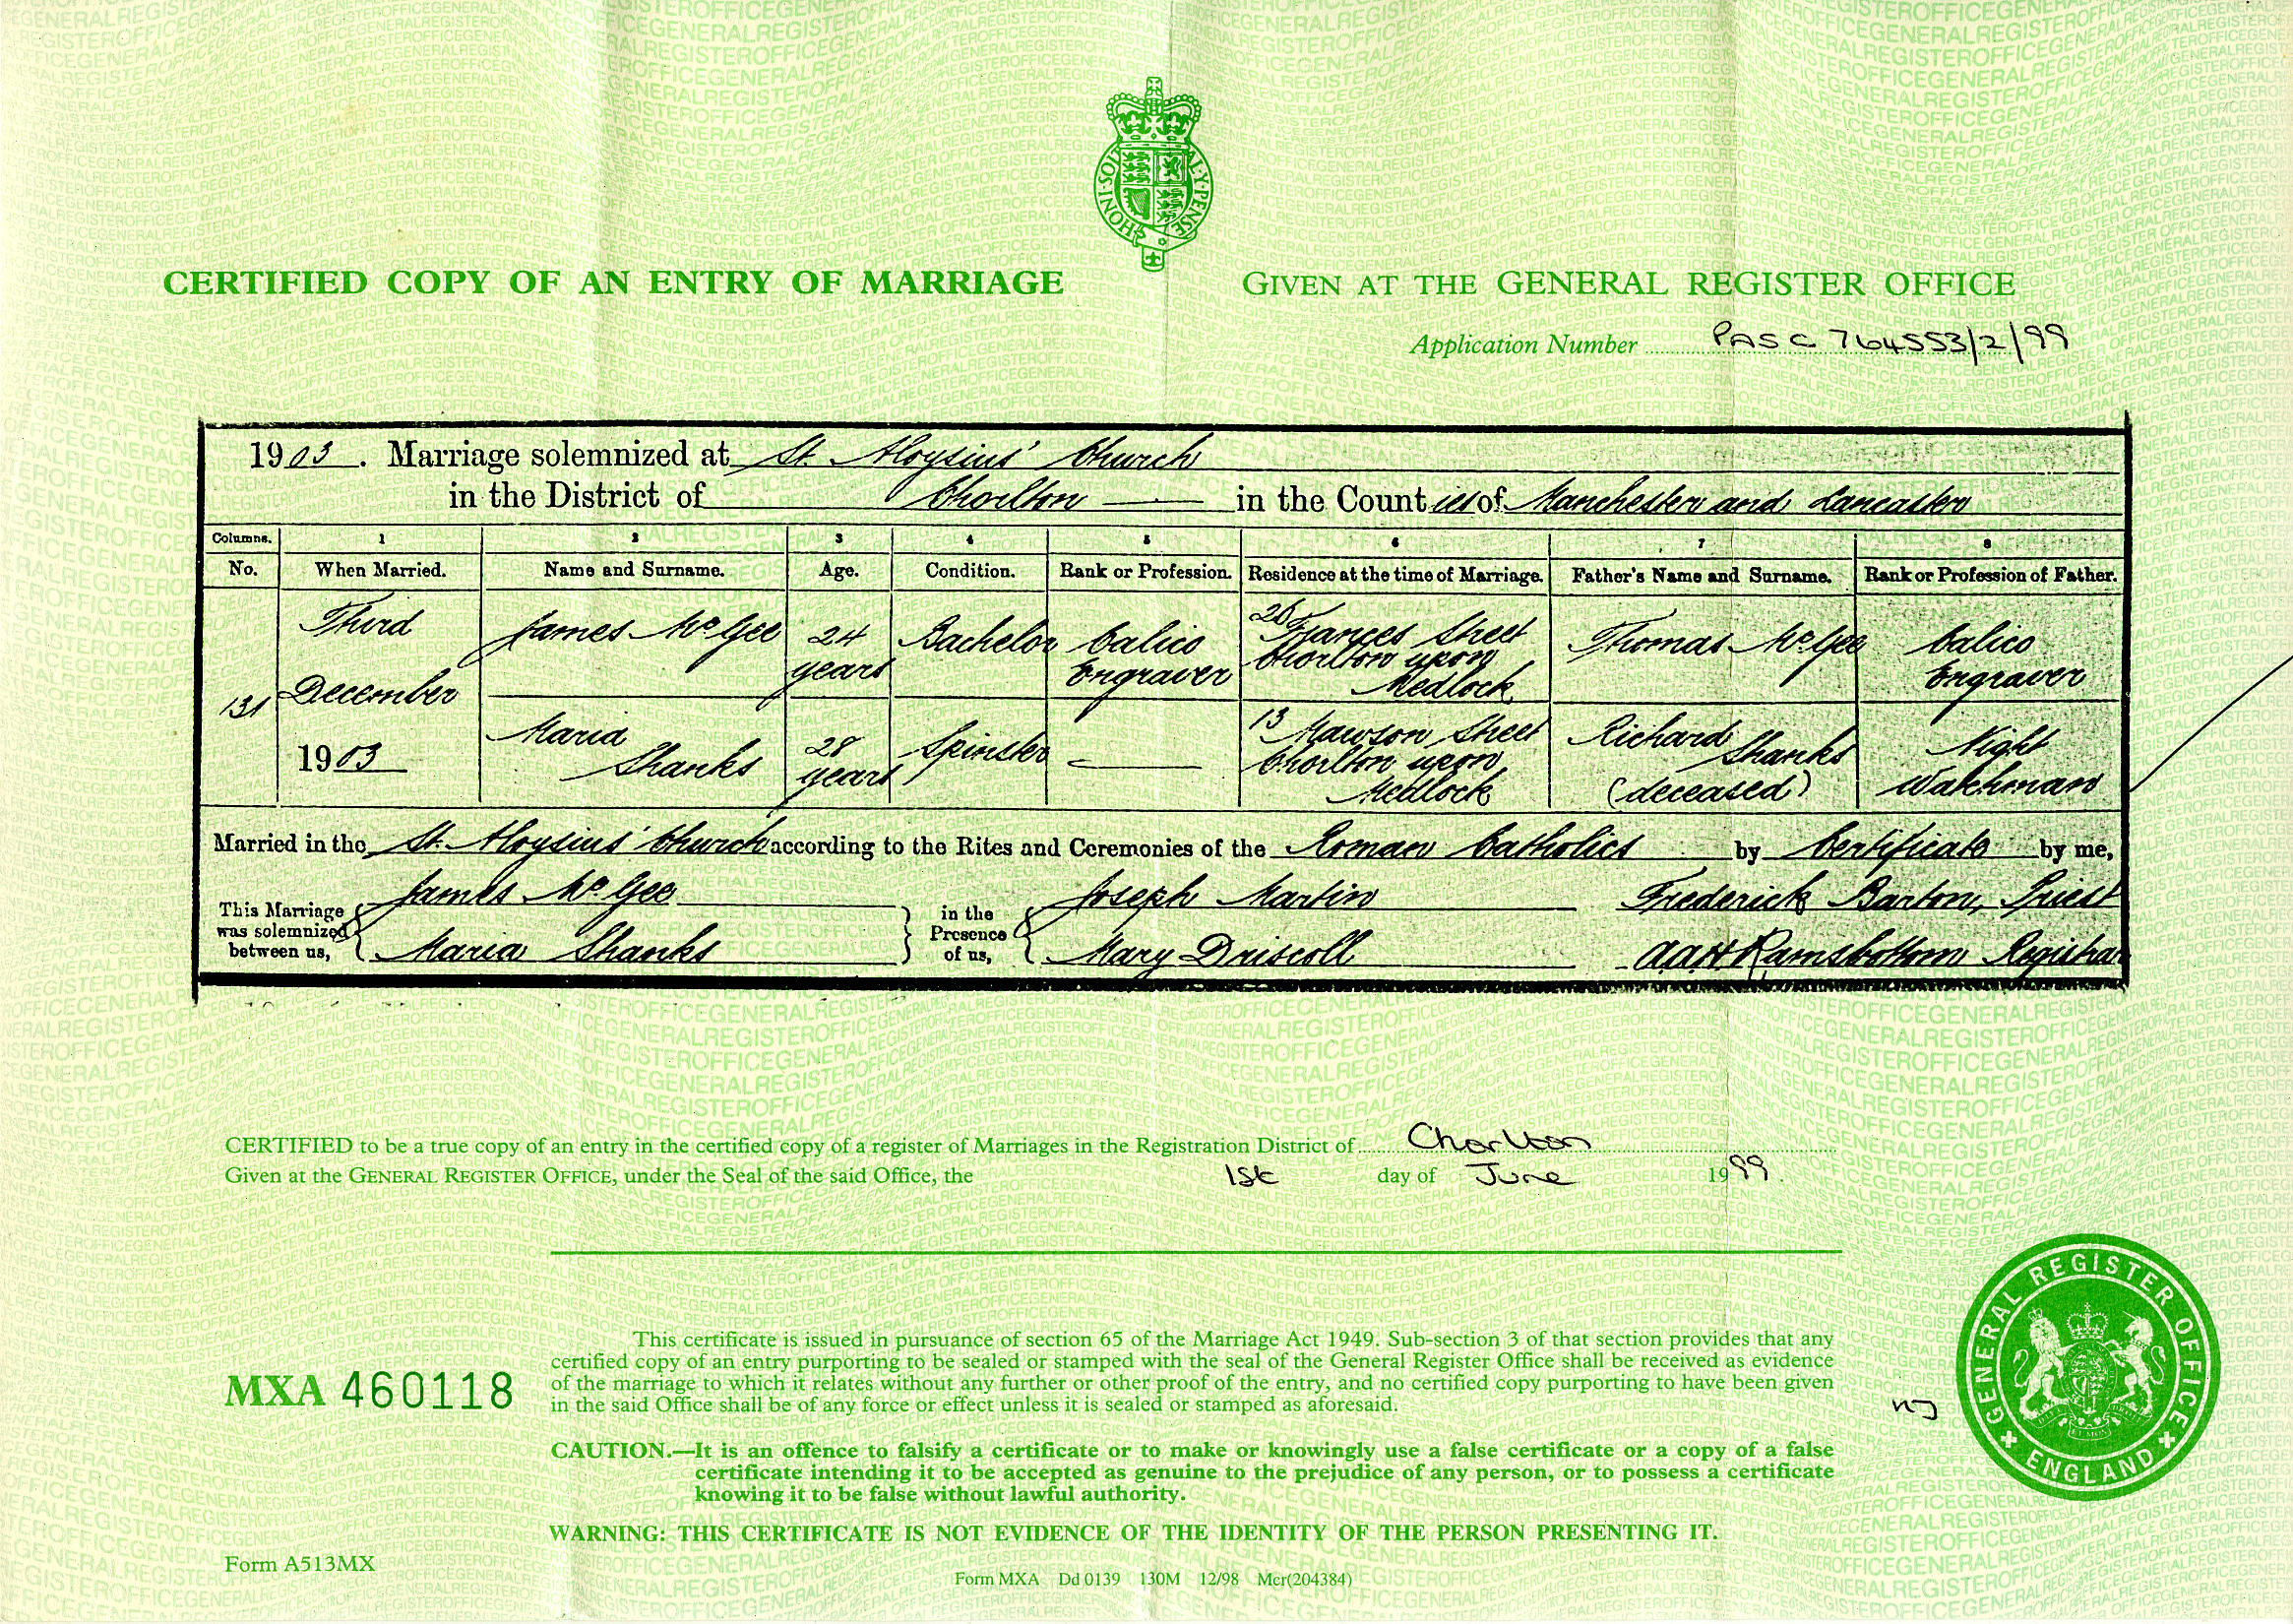 HONI·SOIT
AL·Y·PENSE
CERTIFIED COPY OF AN ENTRY OF MARRIAGE
GIVEN AT THE GENERAL REGISTER OFFICE
Application Number PASC 764553/2/99
1903. Marriage solemnized at St. Aloysius' Church
in the District of Chorlton in the Counties of Manchester and Lancaster
Columns. 1 2 3 4 5 6 7 8
No. When Married. Name and Surname. Age. Condition. Rank or Profession. Residence at the time of Marriage. Father's Name and Surname. Rank or Profession of Father.
131 Third December 1903
James McGee 24 years Bachelor Calico Engraver 26 Frances Street Chorlton upon Medlock Thomas McGee Calico Engraver
Maria Shanks 28 years Spinster — 13 Mawson Street Chorlton upon Medlock Richard Shanks (deceased) Night Watchman
Married in the St. Aloysius' Church according to the Rites and Ceremonies of the Roman Catholics by Certificate by me,
This Marriage was solemnized between us, James McGee Maria Shanks
in the Presence of us, Joseph Martin Mary Driscoll
Frederick Barton, Priest
AAH Ramsbottom Registrar
CERTIFIED to be a true copy of an entry in the certified copy of a register of Marriages in the Registration District of Chorlton
Given at the GENERAL REGISTER OFFICE, under the Seal of the said Office, the 1st day of June 1999.
This certificate is issued in pursuance of section 65 of the Marriage Act 1949. Sub-section 3 of that section provides that any
certified copy of an entry purporting to be sealed or stamped with the seal of the General Register Office shall be received as evidence
of the marriage to which it relates without any further or other proof of the entry, and no certified copy purporting to have been given
in the said Office shall be of any force or effect unless it is sealed or stamped as aforesaid.
MXA 460118
CAUTION.—It is an offence to falsify a certificate or to make or knowingly use a false certificate or a copy of a false
certificate intending it to be accepted as genuine to the prejudice of any person, or to possess a certificate
knowing it to be false without lawful authority.
WARNING: THIS CERTIFICATE IS NOT EVIDENCE OF THE IDENTITY OF THE PERSON PRESENTING IT.
GENERAL REGISTER OFFICE
ENGLAND
Form A513MX
Form MXA Dd 0139 130M 12/98 Mcr(204384)